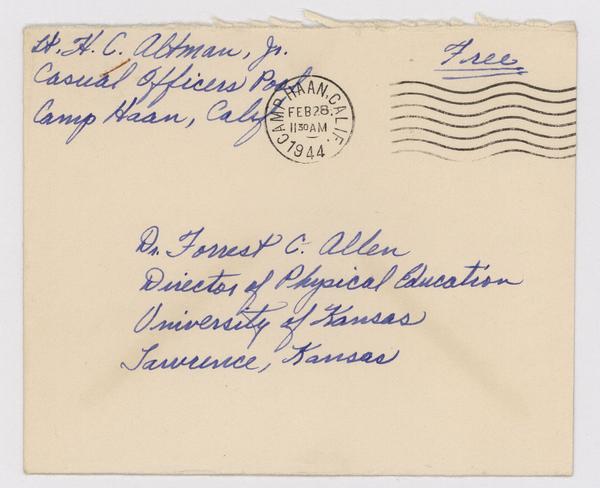 Lt. H. C. Altman, Jr.
Casual Officers Pool
Camp Haan, Calif
Free
CAMP HAAN, CALIF.
FEB 28
11 30 AM
1944
Dr. Forrest C. Allen
Director of Physical Education
University of Kansas
Lawrence, Kansas